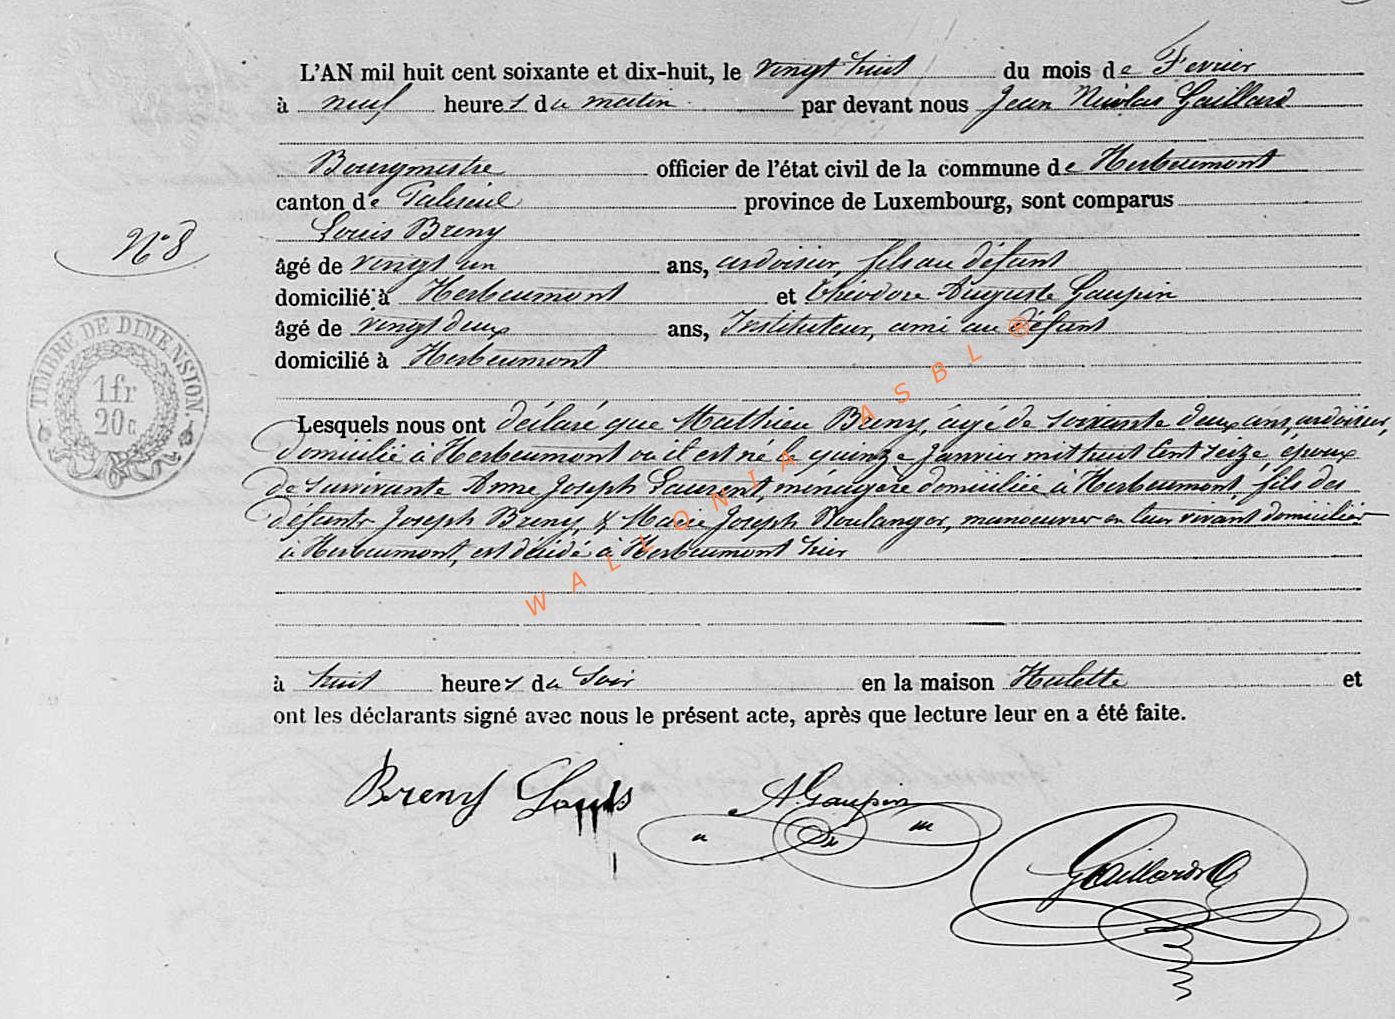 L'AN mil huit cent soixante et dix-huit, le vingt huit du mois de Fevrier
à neuf heures du matin par devant nous Jean Nicolas Gaillard
Bourgmestre officier de l'état civil de la commune de Herbeumont
canton de Paliseul province de Luxembourg, sont comparus
Louis Breny
N° 8
âgé de vingt un ans, ardoisier, fils au défunt
domicilié à Herbeumont et Théodore Auguste Gaupin
âgé de vingt deux ans, Instituteur, ami au défunt
domicilié à Herbeumont
TIMBRE DE DIMENSION
1 fr
20 c
Lesquels nous ont déclaré que Mathieu Breny, âgé de soixante deux ans, ardoisier,
domicilié à Herbeumont où il est né le quinze Janvier mil huit cent seize, époux
de survivante Anne Joseph Laurent, ménagère domiciliée à Herbeumont, fils des
défunts Joseph Breny, & Marie Joseph Boulanger, manoeuvres en leur vivant domiciliés
à Herbeumont, est décédé à Herbeumont hier
à huit heures du Soir en la maison Hulette et
ont les déclarants signé avec nous le présent acte, après que lecture leur en a été faite.
Breny Louis
A. Gaupin
Gaillard
WALLONIA ASBL ®